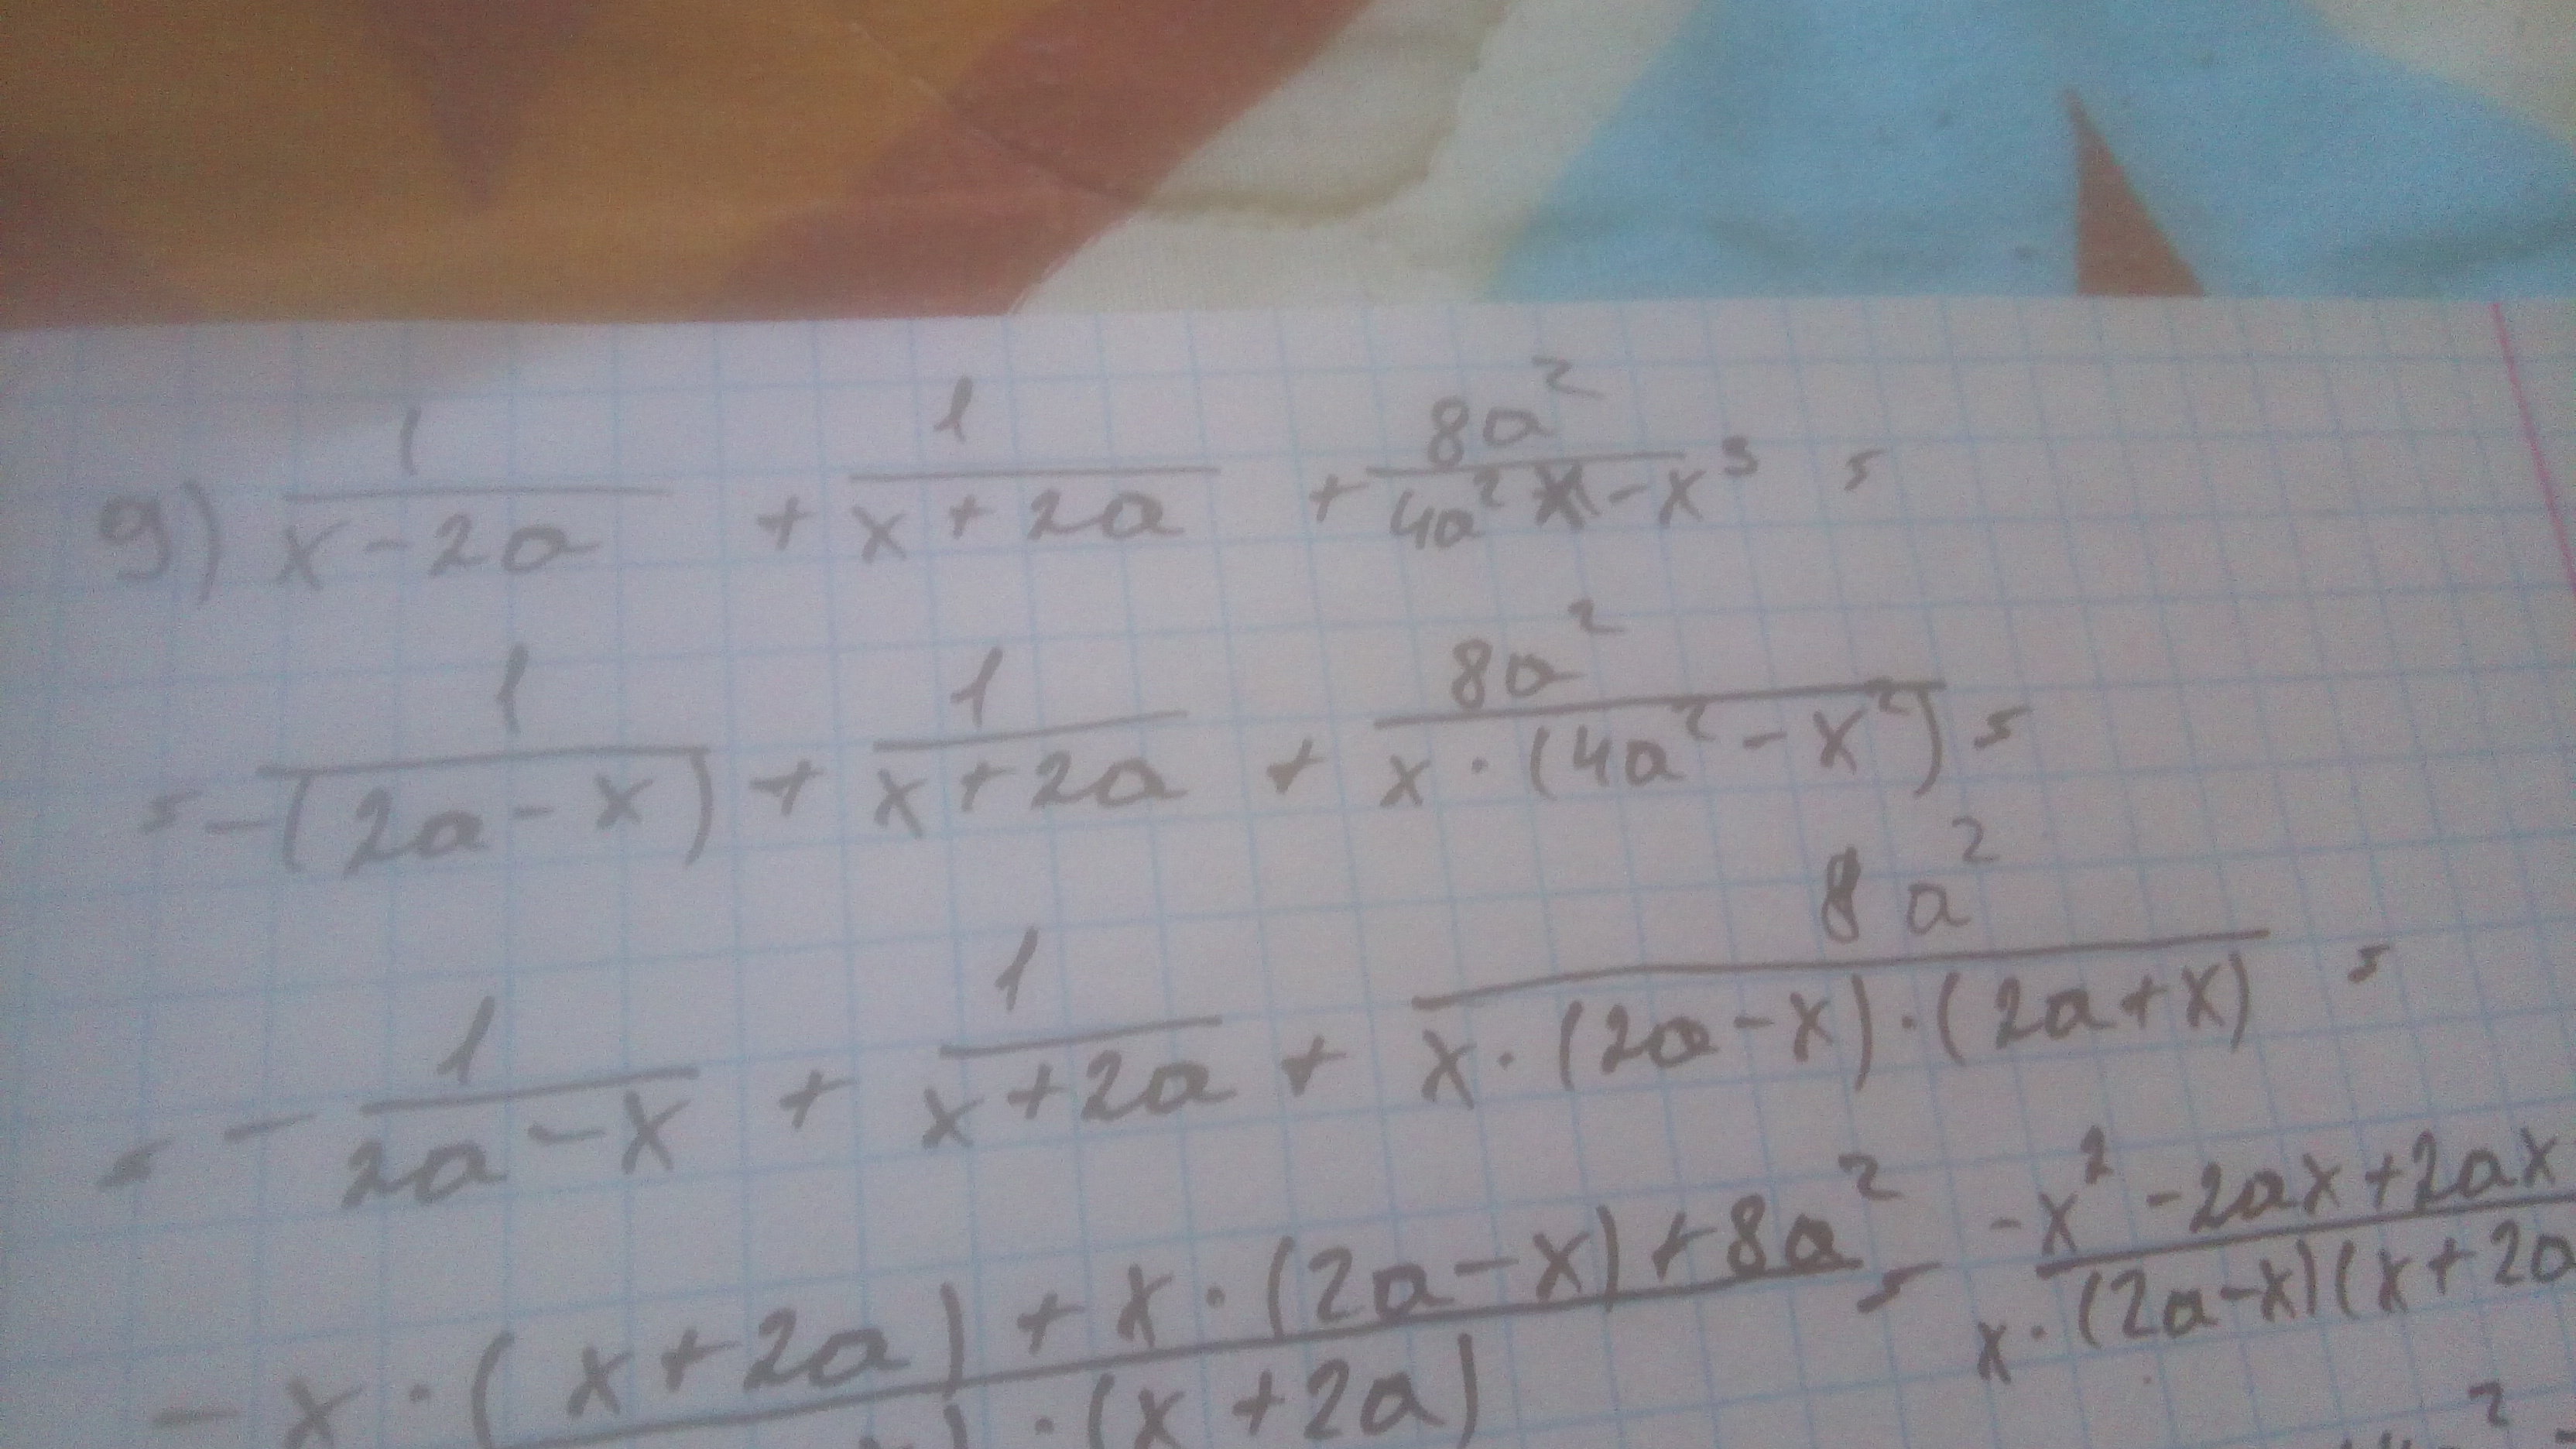 9) 1/(x-2a) + 1/(x+2a) + 8a²/(4a²x-x³) =
= 1/(-(2a-x)) + 1/(x+2a) + 8a²/(x·(4a²-x²)) =
= - 1/(2a-x) + 1/(x+2a) + 8a²/(x·(2a-x)·(2a+x)) =
-x·(x+2a)+x·(2a-x)+8a² = -x²-2ax+2ax
·(x+2a) x·(2a-x)(x+2a